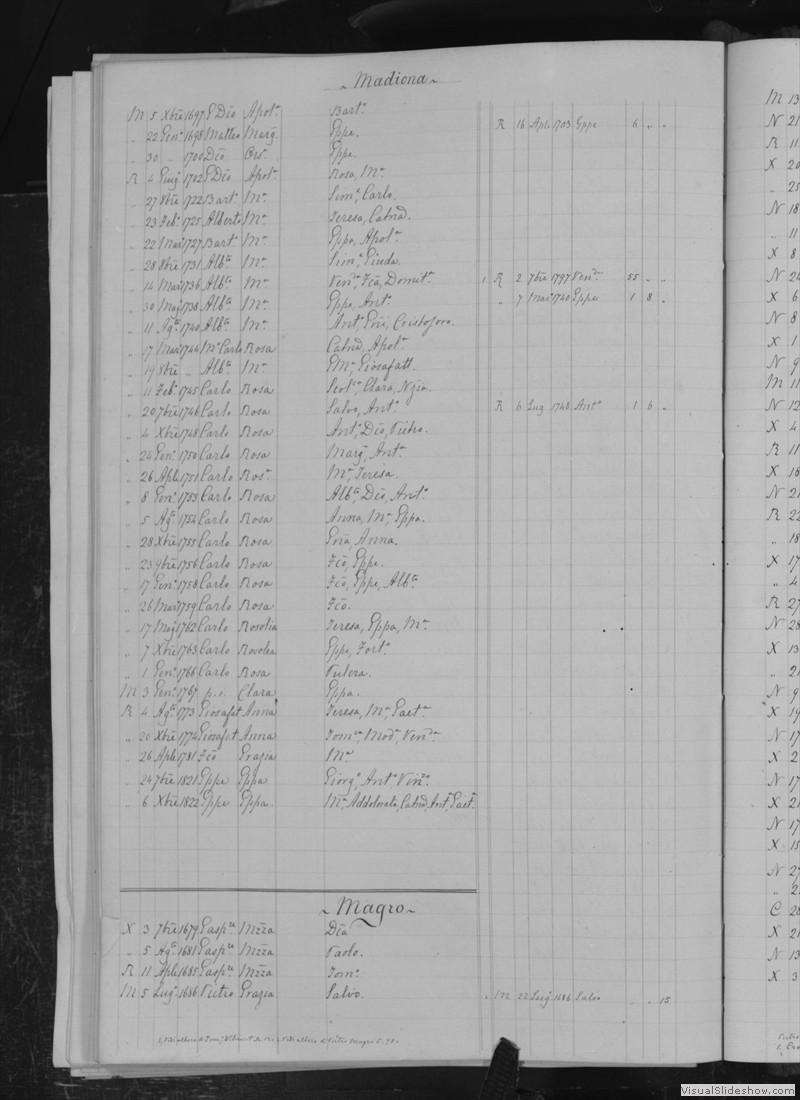 Madiona
M 5 Xbre 1697 P Dio Apol.a Bart.o
" 22 Gen.o 1698 Matteo Marg. Gppe. R 16 Aple 1703 Gppe 6 " "
" 30 " 1700 Dio Ors. Gppe.
R 4 Giug. 1702 P Dio Apol.a Rosa, M.a
" 27 8bre 1722 Bart. M.a Sim.e, Carlo.
" 23 Feb. 1725 Alberto M.a Teresa, Catna.
" 22 Mar. 1727 Bart. M.a Gppe, Apol.a
" 28 8bre 1731 Alb.to M.a Sim.e, Giuda.
" 14 Mar. 1736 Alb.to M.a Ven.a, Fca, Domit.a 1 R 2 7bre 1797 Ven.a 55 " "
" 30 Mag. 1738 Alb.to M.a Gppe, Ant.o " 7 Mar. 1740 Gppe 1 8 "
" 11 Ag.to 1740 Alb.to M.a Ant.o Gni, Cristoforo.
" 17 Mar. 1744 M.o Carlo Rosa Catna, Apol.a
" 19 8bre " Alb.to M.a Giosafatt.
" 11 Feb. 1745 Carlo Rosa Scol.a, Clara, Nzia.
" 20 7bre 1746 Carlo Rosa Salvo, Ant.o R 6 Lug 1748 Ant.o 1 6 "
" 4 Xbre 1748 Carlo Rosa Ant.o, Dio, Pietro.
" 24 Gen. 1750 Carlo Rosa Marg., Ant.a
" 26 Aple 1751 Carlo Ros.a M.a Teresa.
" 8 Gen. 1753 Carlo Rosa Alb.to, Dio, Ant.o
" 5 Ag.to 1754 Carlo Rosa Anna, M.a, Gppa.
" 28 Xbre 1755 Carlo Rosa Gna, Anna.
" 23 9bre 1756 Carlo Rosa Fco, Gppe.
" 17 Gen. 1758 Carlo Rosa Fco, Gppe, Alb.to
" 26 Mar. 1759 Carlo Rosa Fco.
" 17 Mag. 1762 Carlo Rosolia Teresa, Gppa, M.a
" 7 Xbre 1763 Carlo Rosolea Gppe, Fort.o
" 1 Gen. 1766 Carlo Rosa Pulcra.
M 3 Gen. 1767 p. i. Clara Gppa.
R 4 Ag.to 1773 Giosafat Anna Teresa, M.a, Gaet.a
" 20 Xbre 1774 Giosafat Anna Tom.a, Mod., Ven.a
" 26 Aple 1781 Fco Grazia M.a
" 24 7bre 1821 Gppe Gppa Giorg.o, Ant.o Vin.o.
" 6 Xbre 1822 Gppe Gppa. M.a Addolorata, Catna, Ant.a, Gaet.a
Magro
X 3 7bre 1679 Gasp.re Mzza Dia
" 5 Ag.to 1681 Gasp.re Mzza Paolo.
R 11 Aple 1685 Gasp.re Mzza Tom.o
M 5 Lug. 1686 Pietro Grazia Salvo. " M 22 Lug. 1686 Salvo " " 15
M 13
N 21
R 11
X 20
" 25
N 18
" 11
X 8
N 24
X 6
N 8
X 1
N 9
M 11
N 12
X 4
R 11
X 18
N 21
R 22
" 18
X 17
" 4
R 27
N 28
X 13
" 21
N 9
X 19
N 17
X 2
N 17
X 21
N 17
X 15
N 27
" 2
C 28
X 21
N 13
X 3
VisualSlideshow.com